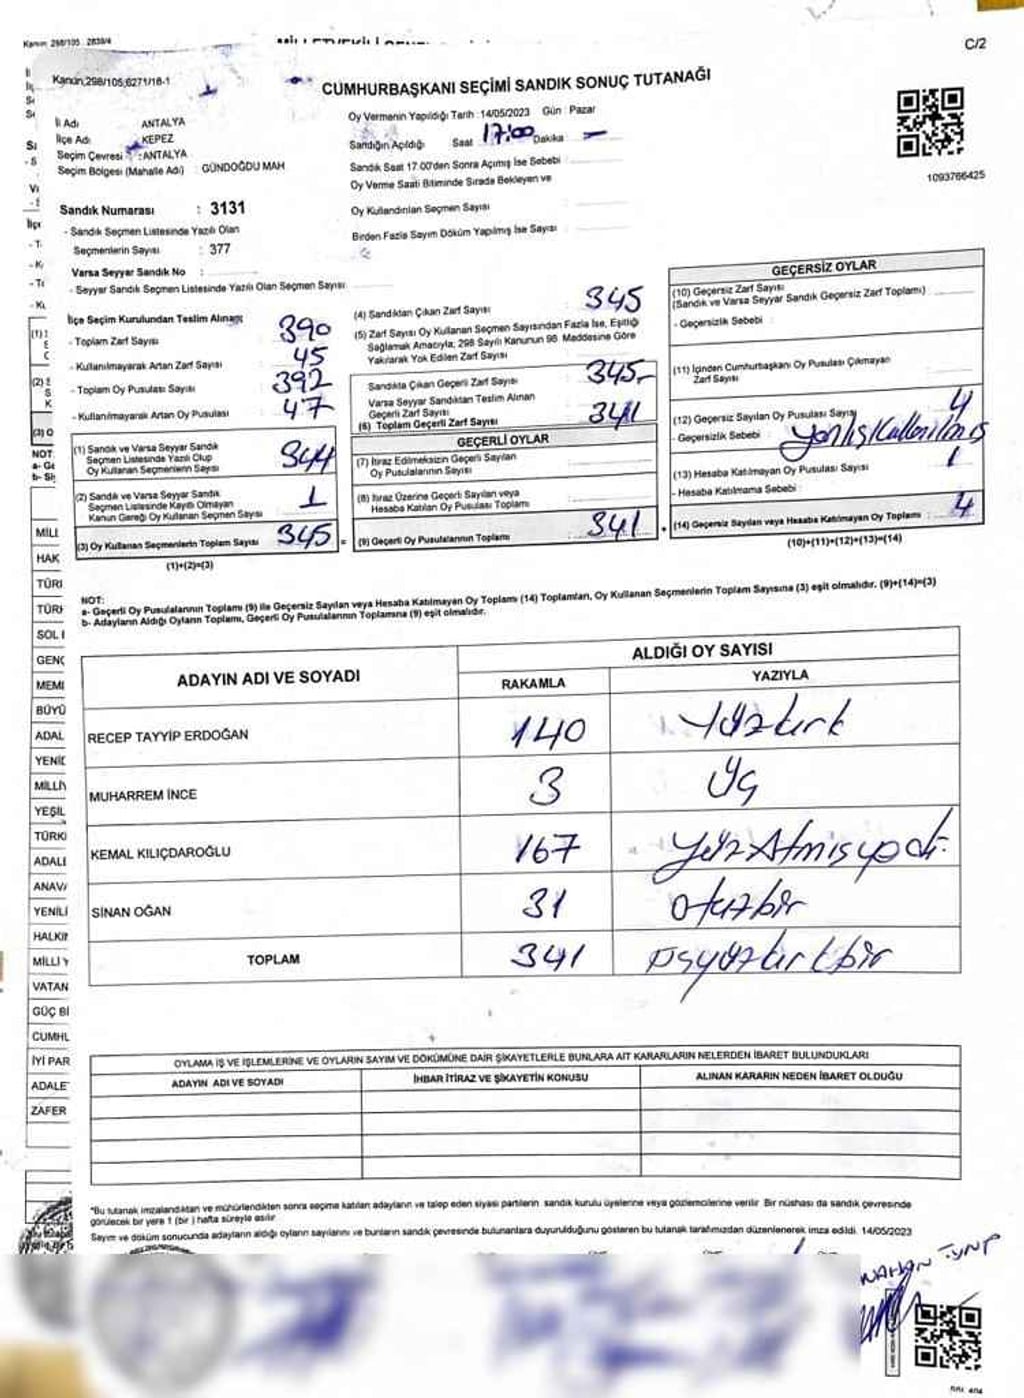 Kanun: 298/105 2839/4
C/2
Kanun;298/105;6271/16-1
CUMHURBAŞKANI SEÇİMİ SANDIK SONUÇ TUTANAĞI
İl Adı : ANTALYA
İlçe Adı : KEPEZ
Seçim Çevresi : ANTALYA
Seçim Bölgesi (Mahalle Adı) : GÜNDOĞDU MAH
Oy Vermenin Yapıldığı Tarih : 14/05/2023 Gün : Pazar
Sandığın Açıldığı Saat 17:00 Dakika : —
Sandık Saat 17.00'den Sonra Açımış İse Sebebi :
Oy Verme Saati Bitiminde Sırada Bekleyen ve
Oy Kullandırılan Seçmen Sayısı :
Birden Fazla Sayım Döküm Yapılmış İse Sayısı :
1093766425
Sandık Numarası : 3131
- Sandık Seçmen Listesinde Yazılı Olan
Seçmenlerin Sayısı : 377
Varsa Seyyar Sandık No :
- Seyyar Sandık Seçmen Listesinde Yazılı Olan Seçmen Sayısı:
İlçe Seçim Kurulundan Teslim Alınan;
- Toplam Zarf Sayısı : 390
- Kullanılmayarak Artan Zarf Sayısı : 45
- Toplam Oy Pusulası Sayısı : 392
- Kullanılmayarak Artan Oy Pusulası : 47
(1) Sandık ve Varsa Seyyar Sandık
Seçmen Listesinde Yazılı Olup
Oy Kullanan Seçmenlerin Sayısı : 344
(2) Sandık ve Varsa Seyyar Sandık
Seçmen Listesinde Kayıtlı Olmayan
Kanun Gereği Oy Kullanan Seçmen Sayısı : 1
(3) Oy Kullanan Seçmenlerin Toplam Sayısı : 345 =
(1)+(2)=(3)
(4) Sandıktan Çıkan Zarf Sayısı : 345
(5) Zarf Sayısı Oy Kullanan Seçmen Sayısından Fazla İse, Eşitliği
Sağlamak Amacıyla, 298 Sayılı Kanunun 98. Maddesine Göre
Yakılarak Yok Edilen Zarf Sayısı :
Sandıkta Çıkan Geçerli Zarf Sayısı : 345-
Varsa Seyyar Sandıktan Teslim Alınan
Geçerli Zarf Sayısı :
(6) Toplam Geçerli Zarf Sayısı : 341
GEÇERLİ OYLAR
(7) İtiraz Edilmeksizin Geçerli Sayılan
Oy Pusulalarının Sayısı :
(8) İtiraz Üzerine Geçerli Sayılan veya
Hesaba Katılan Oy Pusulası Toplamı :
(9) Geçerli Oy Pusulalarının Toplamı : 341 +
GEÇERSİZ OYLAR
(10) Geçersiz Zarf Sayısı
(Sandık ve Varsa Seyyar Sandık Geçersiz Zarf Toplamı) :
- Geçersizlik Sebebi :
(11) İçinden Cumhurbaşkanı Oy Pusulası Çıkmayan
Zarf Sayısı :
(12) Geçersiz Sayılan Oy Pusulası Sayısı : 4
- Geçersizlik Sebebi : yanlış kullanılmış
(13) Hesaba Katılmayan Oy Pusulası Sayısı : 1
- Hesaba Katılmama Sebebi :
(14) Geçersiz Sayılan veya Hesaba Katılmayan Oy Toplamı : 4
(10)+(11)+(12)+(13)=(14)
NOT:
a- Geçerli Oy Pusulalarının Toplamı (9) ile Geçersiz Sayılan veya Hesaba Katılmayan Oy Toplamı (14) Toplamları, Oy Kullanan Seçmenlerin Toplam Sayısına (3) eşit olmalıdır. (9)+(14)=(3)
b- Adayların Aldığı Oyların Toplamı, Geçerli Oy Pusulalarının Toplamına (9) eşit olmalıdır.
ADAYIN ADI VE SOYADI
ALDIĞI OY SAYISI
RAKAMLA YAZIYLA
RECEP TAYYİP ERDOĞAN 140 Yüzkırk
MUHARREM İNCE 3 Üç
KEMAL KILIÇDAROĞLU 167 YüzAtmışyedi
SİNAN OĞAN 31 Otuzbir
TOPLAM 341 üçyüzkırkbir
OYLAMA İŞ VE İŞLEMLERİNE VE OYLARIN SAYIM VE DÖKÜMÜNE DAİR ŞİKAYETLERLE BUNLARA AİT KARARLARIN NELERDEN İBARET BULUNDUKLARI
ADAYIN ADI VE SOYADI İHBAR İTİRAZ VE ŞİKAYETİN KONUSU ALINAN KARARIN NEDEN İBARET OLDUĞU
*Bu tutanak imzalandıktan ve mühürlendikten sonra seçime katılan adayların ve talep eden siyasi partilerin sandık kurulu üyelerine veya gözlemcilerine verilir. Bir nüshası da sandık çevresinde
görülecek bir yere 1 (bir ) hafta süreyle asılır.
Sayım ve döküm sonucunda adayların aldığı oyların sayılarını ve bunların sandık çevresinde bulunanlara duyurulduğunu gösteren bu tutanak tarafımızdan düzenlenerek imza edildi. 14/05/2023
MİLL
HAK
TÜRI
SOL
GENÇ
MEMI
BÜYÜ
ADAL
YENİD
YEŞİL
TÜRKİ
ANAVA
YENİLİ
HALKIN
MİLLİ Y
VATAN
GÜÇ Bİ
CUMHU
İYİ PAR
ADALE
ZAFER